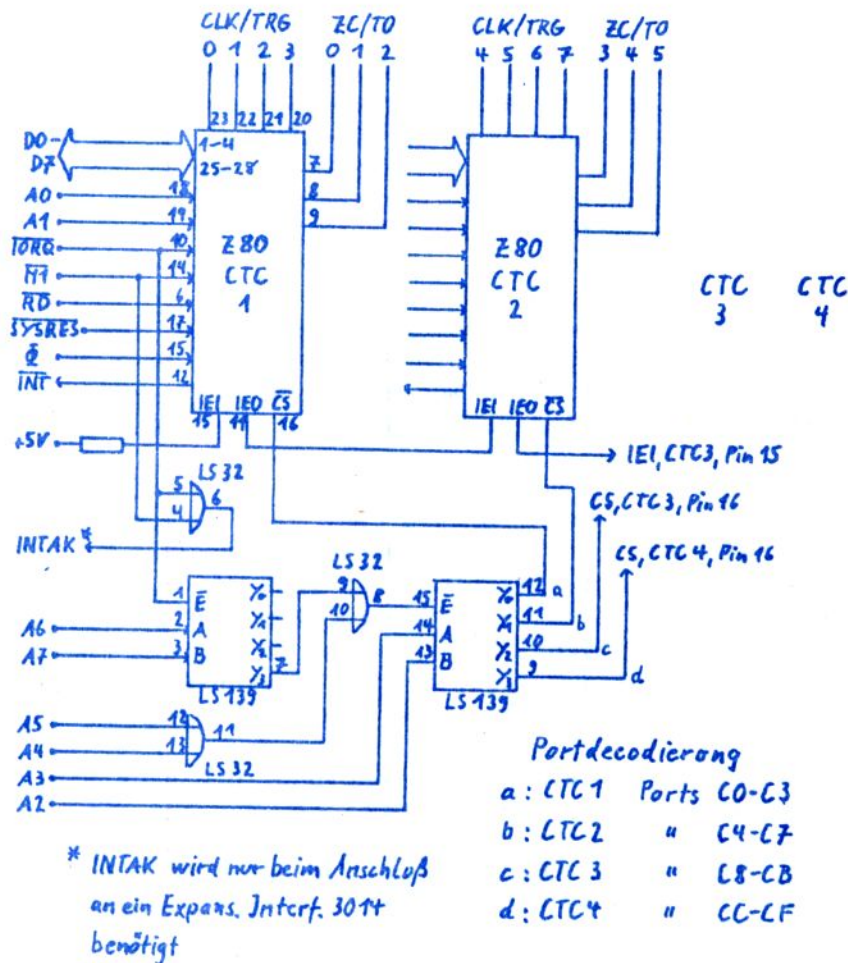 CLK/TRG ZC/TO
0 1 2 3 0 1 2
CLK/TRG ZC/TO
4 5 6 7 3 4 5
23 22 21 20
D0-
D7
1-4
25-28
7
8
9
A0 18
A1 19
IORQ 10
M1 14
RD 6
SYSRES 17
Φ 15
INT 12
Z80
CTC
1
IEI IEO CS
15 11 16
Z80
CTC
2
IEI IEO CS
CTC
3
CTC
4
+5V
IEI, CTC3, Pin 15
LS32
5
4
6
INTAK*
CS, CTC3, Pin 16
CS, CTC4, Pin 16
1 E
A6 2 A
A7 3 B
Y0
Y1
Y2
Y3 7
LS139
LS32
9
10
8
15 E
14 A
13 B
Y0 12 a
Y1 11 b
Y2 10 c
Y3 9 d
LS139
A5 12
A4 13
11
LS32
A3
A2
Portdecodierung
a: CTC1 Ports C0-C3
b: CTC2 " C4-C7
c: CTC3 " C8-CB
d: CTC4 " CC-CF
* INTAK wird nur beim Anschluß
an ein Expans. Interf. 3014
benötigt